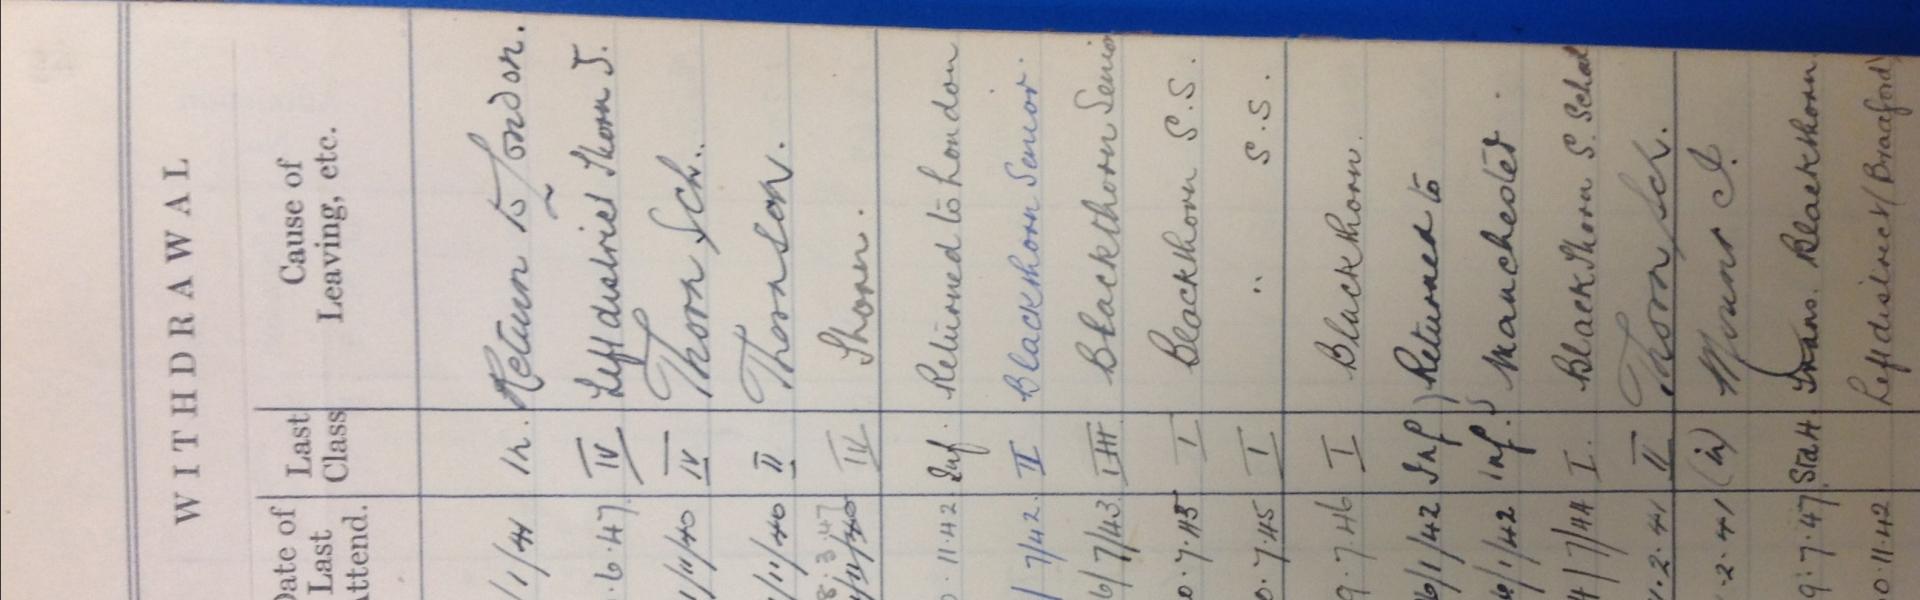 WITHDRAWAL
Date of Last Attend. Last Class Cause of Leaving, etc.
/1/41 In. Return to London.
.6.47. IV Left district Thorn J.
1/11/40 IV Thorn Sch.
1/11/40 II Thorn Sch.
8.3.47 IV Thorn.
0.11.42 Inf. Returned to London
/7/42. II Blackthorn Senior.
6/7/43 III Blackthorn Senior
0.7.45 I Blackthorn S.S.
0.7.45 I " S.S.
9.7.46 I Blackthorn.
6/1/42 Inf ) Returned to
6/1/42 Inf. Manchester.
4/7/44 I. Blackthorn S. School
1.2.41 II Thorn Sch.
.2.41 (iv)
9.7.47. Std 4. Trans. Blackthorn.
0.11.42 Left district (Bradford)